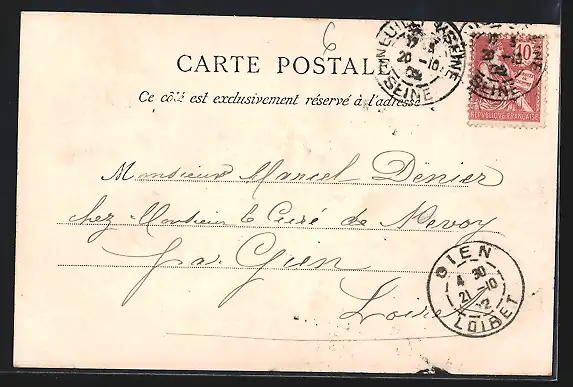 6
NEUILLY S SEINE
20 -10
SEINE
10
REPUBLIQUE FRANÇAISE
CARTE POSTALE
Ce côté est exclusivement réservé à l'adresse
Monsieur Marcel Dénier
chez Monsieur le Curé de Nevoy
par Gien
Loiret
GIEN
4 30
21 -10
LOIRET